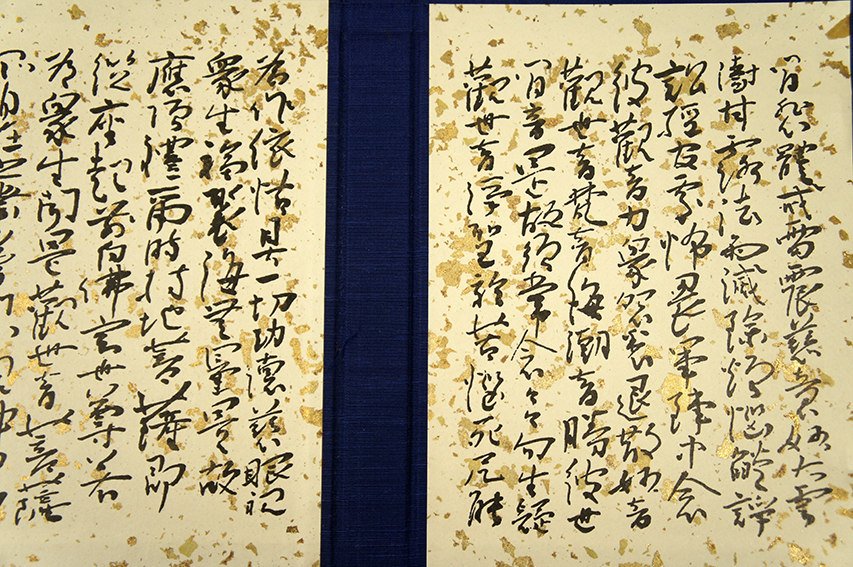 間悲體戒雷震慈意妙大雲
澍甘露法雨滅除煩惱焰諍
訟經官處怖畏軍陣中念
彼觀音力衆怨悉退散妙音
觀世音梵音海潮音勝彼世
間音是故須常念々勿生疑
觀世音淨聖於苦惱死厄能
為作依怙具一切功德慈眼視
衆生福聚海無量是故
應頂禮爾時持地菩薩即
從座起前白佛言世尊若
有衆生聞是觀世音菩薩
品自在之業普門示現神